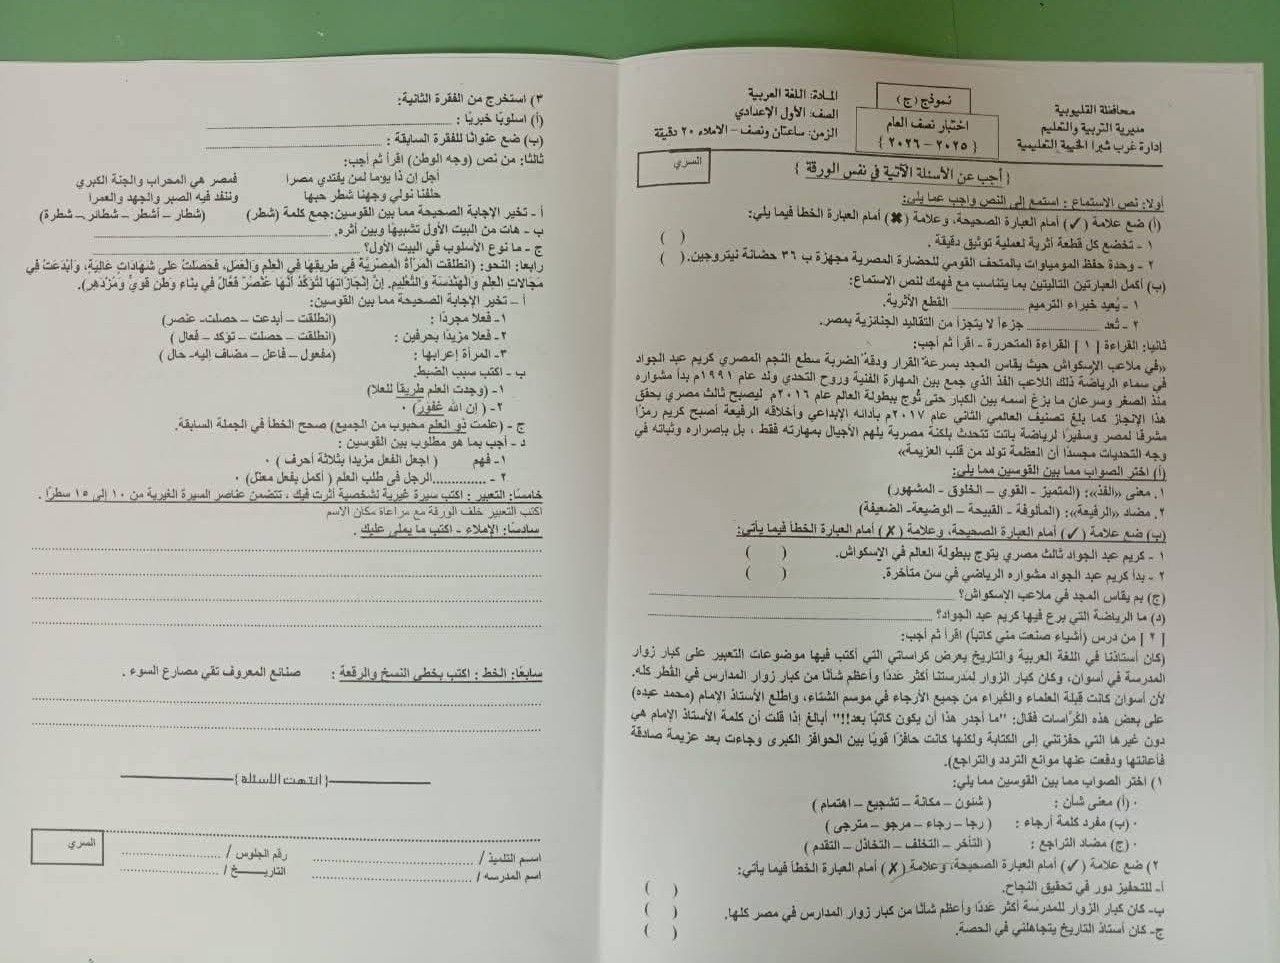 محافظة القليوبية
مديرية التربية والتعليم
إدارة غرب شبرا الخيمة التعليمية
نموذج (ج)
اختبار نصف العام
{ ٢٠٢٥ – ٢٠٢٦ }
المادة: اللغة العربية
الصف: الأول الإعدادي
الزمن: ساعتان ونصف – الاملاء ٢٠ دقيقة
السري
{ أجب عن الأسئلة الآتية في نفس الورقة }
أولا: نص الاستماع : استمع إلى النص واجب عما يلي:
(أ) ضع علامة (✓) أمام العبارة الصحيحة، وعلامة (✖) أمام العبارة الخطأ فيما يلي:
١ - تخضع كل قطعة أثرية لعملية توثيق دقيقة . ( )
٢ - وحدة حفظ المومياوات بالمتحف القومي للحضارة المصرية مجهزة ب ٣٦ حضانة نيتروجين. ( )
(ب) أكمل العبارتين التاليتين بما يتناسب مع فهمك لنص الاستماع:
١ - يُعيد خبراء الترميم ............ القطع الأثرية.
٢ - تُعد ............ جزءاً لا يتجزأ من التقاليد الجنائزية بمصر.
ثانيا: القراءة [ ١ ] القراءة المتحررة - اقرأ ثم أجب:
«في ملاعب الإسكواش حيث يقاس المجد بسرعة القرار ودقة الضربة سطع النجم المصري كريم عبد الجواد
في سماء الرياضة ذلك اللاعب الفذ الذي جمع بين المهارة الفنية وروح التحدي ولد عام ١٩٩١م بدأ مشواره
منذ الصغر وسرعان ما بزغ اسمه بين الكبار حتى تُوج ببطولة العالم عام ٢٠١٦م ليصبح ثالث مصري يحقق
هذا الإنجاز كما بلغ تصنيف العالمي الثاني عام ٢٠١٧م بأدائه الإبداعي وأخلاقه الرفيعة أصبح كريم رمزًا
مشرفا لمصر وسفيرًا لرياضة باتت تتحدث بلكنة مصرية يلهم الأجيال بمهارته فقط ، بل بإصراره وثباته في
وجه التحديات مجسداً أن العظمة تولد من قلب العزيمة»
(أ) اختر الصواب مما بين القوسين مما يلي:
١. معنى «الفذ»: (المتميز - القوي – الخلوق - المشهور)
٢. مضاد «الرفيعة»: (المألوفة - القبيحة – الوضيعة- الضعيفة)
(ب) ضع علامة (✓) أمام العبارة الصحيحة، وعلامة (✗) أمام العبارة الخطأ فيما يأتي:
١ - كريم عبد الجواد ثالث مصري يتوج ببطولة العالم في الإسكواش. ( )
٢ - بدأ كريم عبد الجواد مشواره الرياضي في سن متأخرة. ( )
(ج) بم يقاس المجد في ملاعب الإسكواش؟ ............
(د) ما الرياضة التي برع فيها كريم عبد الجواد؟ ............
[ ٢ ] من درس (أشياء صنعت مني كاتباً) اقرأ ثم أجب:
(كان أستاذنا في اللغة العربية والتاريخ يعرض كراساتي التي أكتب فيها موضوعات التعبير على كبار زوار
المدرسة في أسوان، وكان كبار الزوار لمدرستنا أكثر عددًا وأعظم شأنًا من كبار زوار المدارس في القطر كله.
لأن أسوان كانت قبلة العلماء والكُبراء من جميع الأرجاء في موسم الشتاء، واطلع الأستاذ الإمام (محمد عبده)
على بعض هذه الكُرَّاسات فقال: "ما أجدر هذا أن يكون كاتبًا بعد!!" أبالغ إذا قلت أن كلمة الأستاذ الإمام هي
دون غيرها التي حفزتني إلى الكتابة ولكنها كانت حافزًا قويًا بين الحوافز الكبرى وجاءت بعد عزيمة صادقة
فأعانتها ودفعت عنها موانع التردد والتراجع).
١) اختر الصواب مما بين القوسين مما يلي:
(أ) معنى شأن : ( شئون – مكانة – تشجيع – اهتمام )
(ب) مفرد كلمة أرجاء : ( رجا – رجاء – مرجو – مترجى )
(ج) مضاد التراجع : ( التأخر – التخلف – التخاذل – التقدم )
٢) ضع علامة (✓) أمام العبارة الصحيحة، وعلامة (✗) أمام العبارة الخطأ فيما يأتي:
أ- للتحفيز دور في تحقيق النجاح. ( )
ب- كان كبار الزوار للمدرسة أكثر عَددًا وأعظم شأنًا من كبار زوار المدارس في مصر كلها. ( )
ج- كان أستاذ التاريخ يتجاهلني في الحصة. ( )
٣) استخرج من الفقرة الثانية:
(أ) اسلوبًا خبريًا : ............
(ب) ضع عنوانًا للفقرة السابقة : ............
ثالثا: من نص (وجه الوطن) اقرأ ثم أجب:
أجل إن ذا يوما لمن يفتدي مصرا فمصر هي المحراب والجنة الكبري
حلفنا نولي وجهنا شطر حبها وننفد فيه الصبر والجهد والعمرا
أ - تخير الإجابة الصحيحة مما بين القوسين:جمع كلمة (شطر) (شطار – أشطر – شطائر- شطرة)
ب - هات من البيت الأول تشبيهًا وبين أثره. ............
ج - ما نوع الأسلوب في البيت الأول؟ ............
رابعا: النحو: (انطلقت المَرْأةُ المِصْرِيَّةُ في طريقِهَا في العلمِ وَالعَمَلِ، فَحَصَلَتْ على شَهَادَاتٍ عَالِيَةٍ، وَأَبْدَعَتْ فِي
مَجَالاتِ العِلْمِ وَالْهَنْدَسَةِ وَالتَّعْلِيمِ. إنّ إِنْجَازَاتِهَا لَتُؤَكِّدُ أَنَّهَا عُنْصُرٌ فَعَّالٌ فِي بِنَاءِ وَطَنٍ قَوِيٍّ وَمُزْدَهِرٍ).
أ – تخير الإجابة الصحيحة مما بين القوسين:
١- فعلا مجردًا : (انطلقت - أبدعت – حصلت- عنصر)
٢- فعلا مزيدًا بحرفين : (انطلقت – حصلت – تؤكد – فعال )
٣- المرأة إعرابها : (مفعول – فاعل – مضاف إليه- حال )
ب - اكتب سبب الضبط.
١- (وجدت العلم طريقًا للعلا)
٢- ( إن الله غفورٌ) ٠
ج - (علمت ذو العلم محبوب من الجميع) صحح الخطأ في الجملة السابقة.
د - أجب بما هو مطلوب بين القوسين :
١- فهم ( اجعل الفعل مزيدا بثلاثة أحرف ) ٠
٢ - ............الرجل في طلب العلم ( أكمل بفعل معتل) ٠
خامسًا: التعبير : اكتب سيرة غيرية لشخصية أثرت فيك ، تتضمن عناصر السيرة الغيرية من ١٠ إلى ١٥ سطرًا .
اكتب التعبير خلف الورقة مع مراعاة مكان الاسم
سادسًا: الإملاء - اكتب ما يملى عليك .
سابعًا: الخط : اكتب بخطي النسخ والرقعة : صنائع المعروف تقي مصارع السوء .
{ انتهت الأسئلة }
اسم التلميذ / ............ رقم الجلوس / ............
اسم المدرسه / ............ التاريــــخ / ............
السري